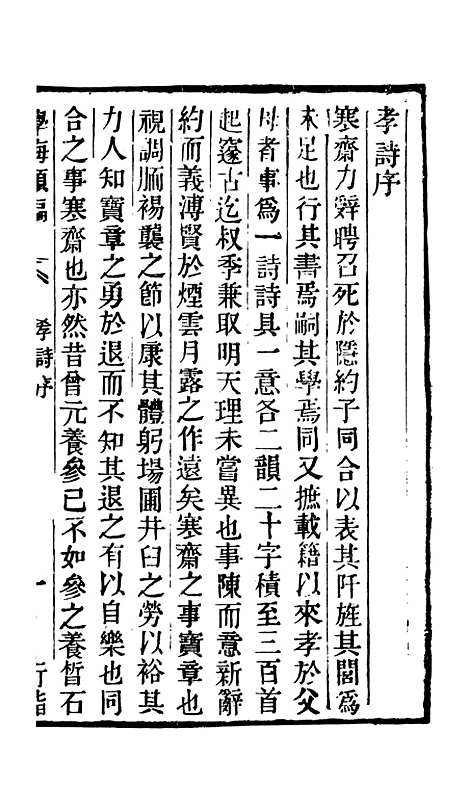 孝詩序
寒齋力辭聘召死於隱約子同合以表其阡旌其閭爲
未足也行其書焉嗣其學焉同又摭載籍以來孝於父
母者事爲一詩詩具一意各二韻二十字積至三百首
起邃古迄叔季兼取明天理未嘗異也事陳而意新辭
約而義溥賢於煙雲月露之作遠矣寒齋之事寶章也
視調膳裼襲之節以康其體躬場圃井臼之勞以裕其
力人知寶章之勇於退而不知其退之有以自樂也同
合之事寒齋也亦然昔曾元養參已不如參之養晳石
學海類編 孝詩序 一 行詣